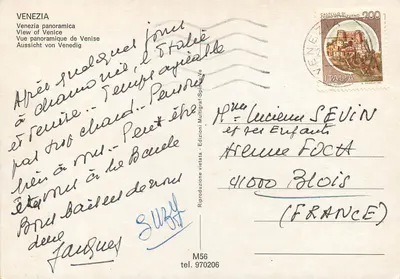 VENEZIA
Venezia panoramica
View of Venice
Vue panoramique de Venise
Aussicht von Venedig
Après quelques jours
à Chamonix, l'Italie
et Venise... Temps agréable
pas trop chaud... Pensons
bien à vous... Peut être
êtes vous à la Baule
Bons baisers de nous
deux
Jacques
SUZY
Riproduzione vietata - Edizioni Multigraf
M56
tel. 970206
VENEZ
200
ITALIA
Mme Lucienne SEVIN
et ses Enfants
Avenue FOCH
41000 Blois
(FRANCE)